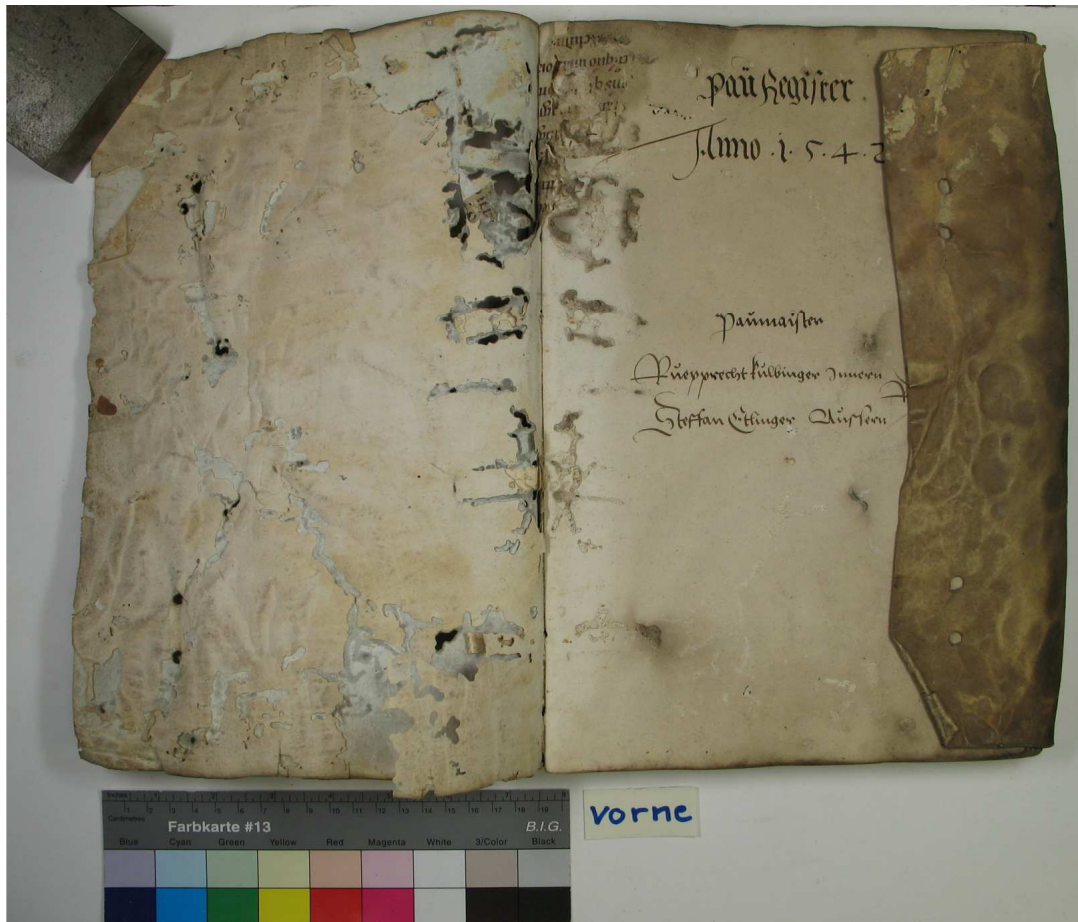 paü Register
Anno . 1 . 5 . 4 . 2
Paümaister
Rüepprecht Külbinger Innern
Steffan Etlinger Aüssern
Inches
Centimetres
Farbkarte #13
B.I.G.
Blue Cyan Green Yellow Red Magenta White 3/Color Black
vorne